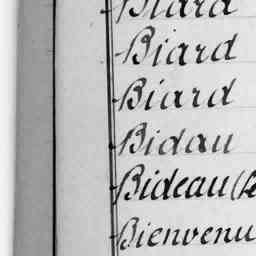 Biard
Biard
Biard
Bidau
Bideau (
Bienvenu